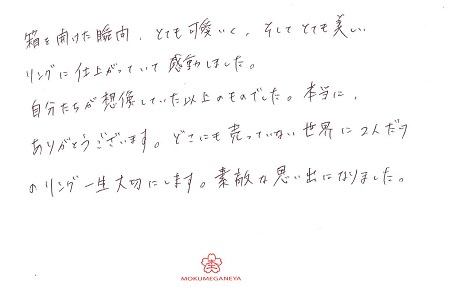 箱を開けた瞬間、とても可愛いく、そしてとても美しい
リングに仕上がっていて感動しました。
自分たちが想像していた以上のものでした。本当に、
ありがとうございます。どこにも売っていない世界に2人だけ
のリング一生大切にします。素敵な思い出になりました。
MOKUMEGANEYA